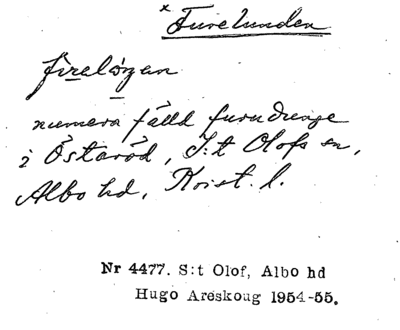 × Furelunden
firelözan
numera fälld furudunge
i Östaröd, S:t Olofs sn,
Albo hd, Krist. l.
Nr 4477. S:t Olof, Albo hd
Hugo Areskoug 1954-55.